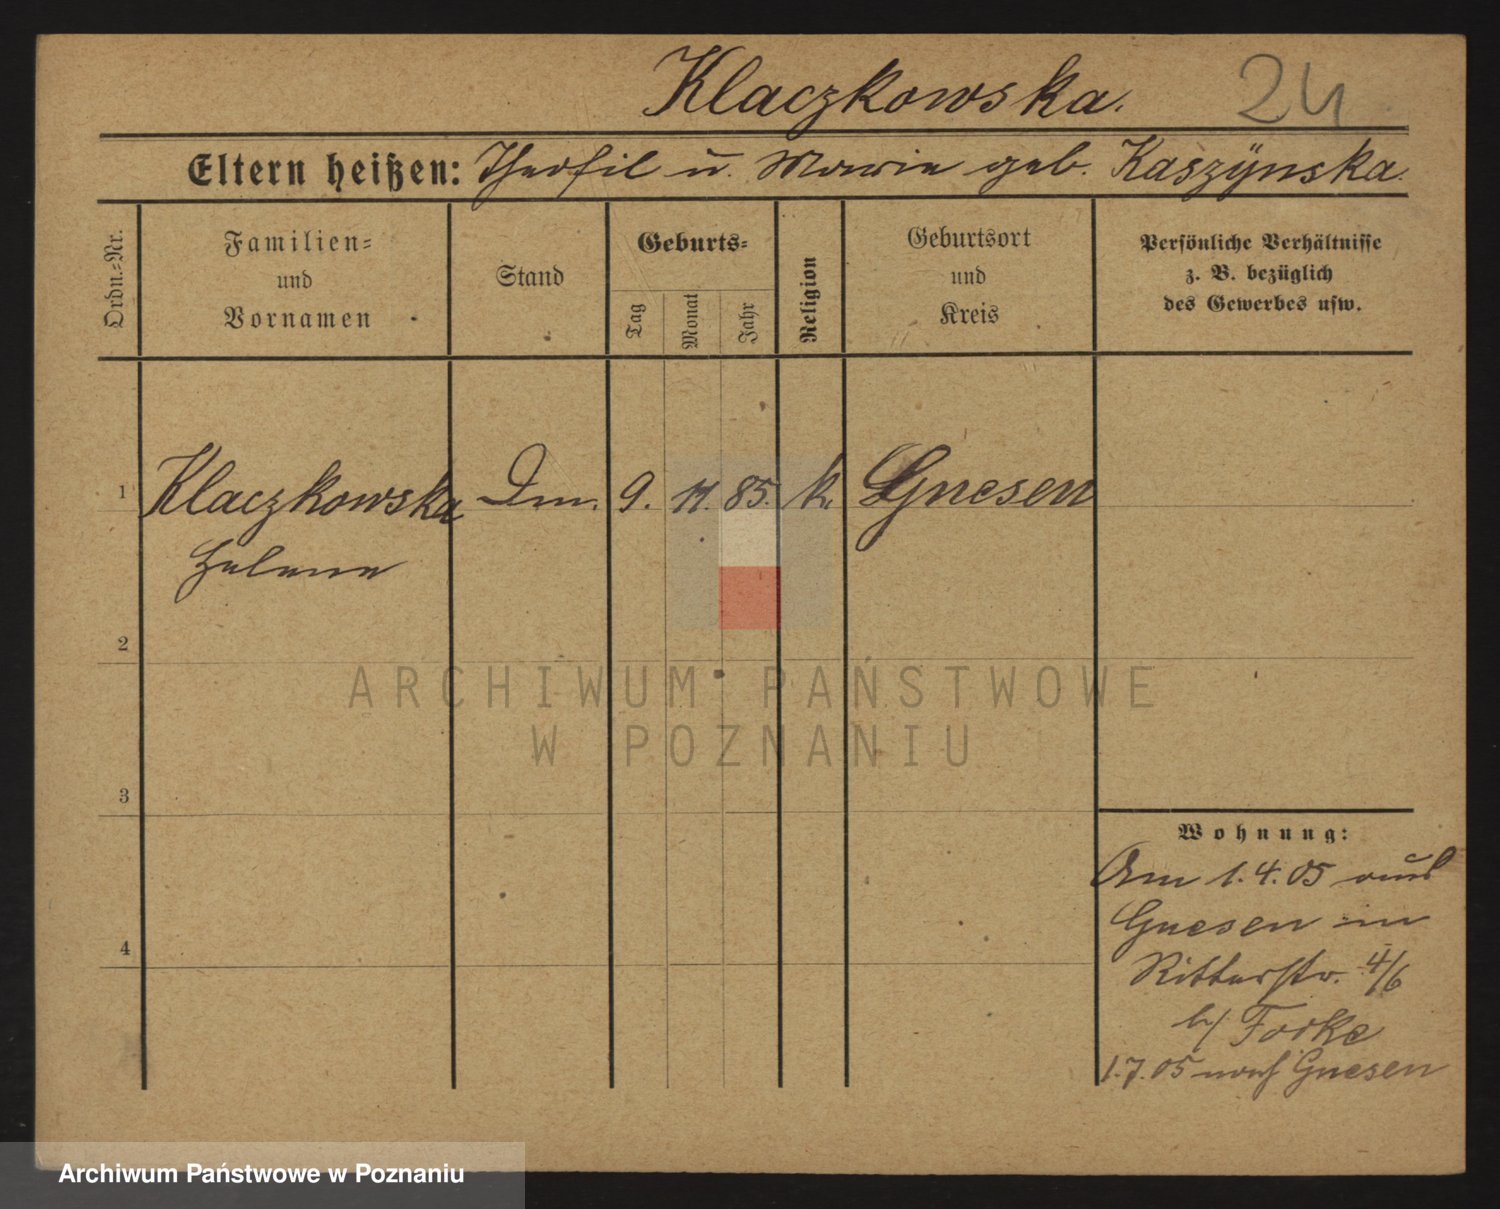 Klaczkowska.
24
Eltern heißen: Theofil u. Marie geb. Kaszÿnska.
Ordn.-Nr.
Familien-
und
Vornamen
Stand
Geburts-
Tag
Monat
Jahr
Religion
Geburtsort
und
Kreis
Persönliche Verhältnisse
z. B. bezüglich
des Gewerbes usw.
1 Klaczkowska 9. 11. 85. k. Gnesen
Helene
2
3
4
ARCHIWUM PAŃSTWOWE
W POZNANIU
Wohnung:
Am 1.4.05 aus
Gnesen in
Ritterstr. 4/6
b/Forke
1.7.05 nach Gnesen
Archiwum Państwowe w Poznaniu